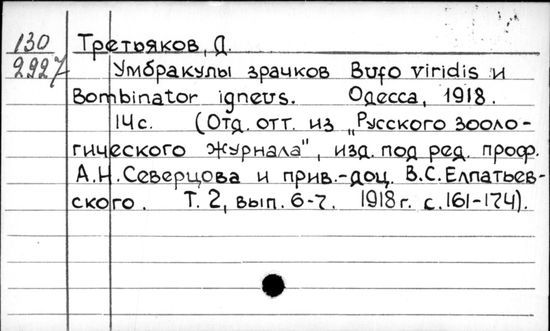 130 Третьяков, Д.
2927 Умбракулы зрачков Bufo viridis и
Bombinator igneus. Одесса, 1918.
14с. (Отд. отт. из „Русского зооло-
гического журнала", изд. под ред. проф.
А.Н.Северцова и прив.-доц. В.С.Елпатьев-
ского. Т. 2, вып. 6-7. 1918г. с.161-174).